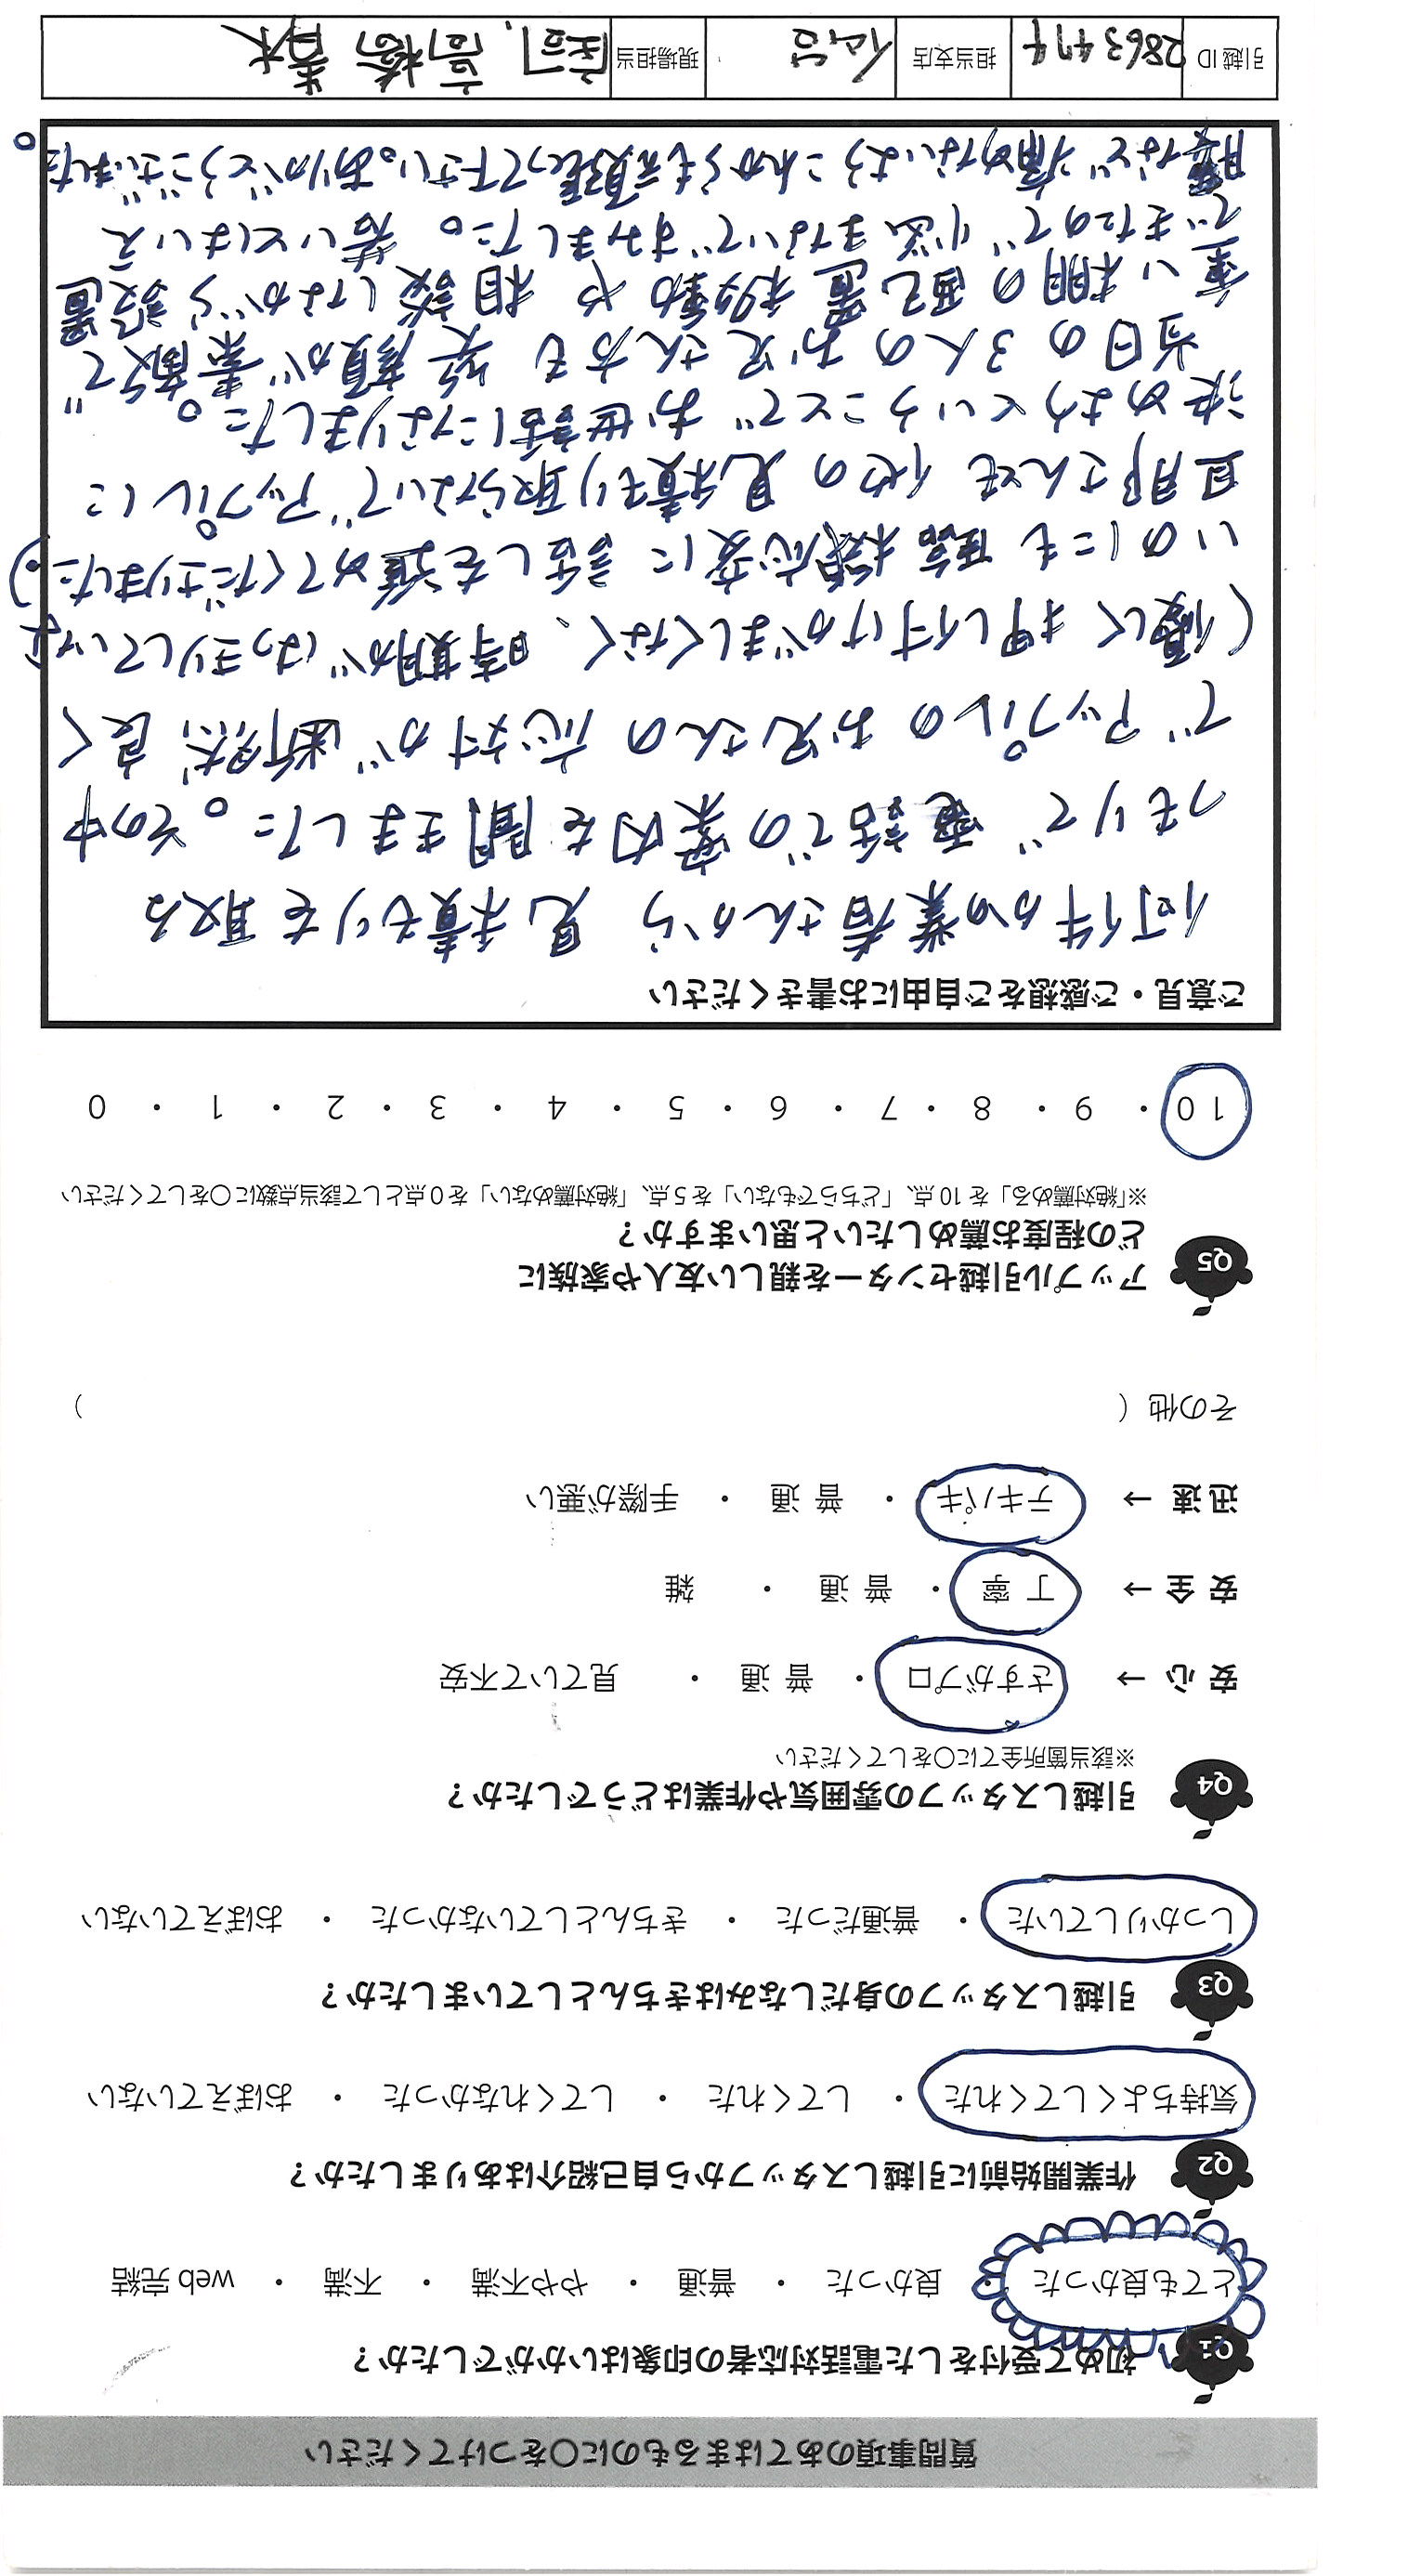 質問事項のあてはまるものに○をつけてください
Q1 初めて受付をした電話対応者の印象はいかがでしたか？
とても良かった ・ 良かった ・ 普通 ・ やや不満 ・ 不満 ・ web 完結
Q2 作業開始前に引越しスタッフから自己紹介はありましたか？
気持ちよくしてくれた ・ してくれた ・ してくれなかった ・ おぼえていない
Q3 引越しスタッフの身だしなみはきちんとしていましたか？
しっかりしていた ・ 普通だった ・ きちんとしていなかった ・ おぼえていない
Q4 引越しスタッフの雰囲気や作業はどうでしたか？
※該当箇所全てに○をしてください
安 心 → さすがプロ ・ 普 通 ・ 見ていて不安
安 全 → 丁 寧 ・ 普 通 ・ 雑
迅 速 → テキパキ ・ 普 通 ・ 手際が悪い
その他（ ）
Q5 アップル引越センターを親しい友人や家族に
どの程度お薦めしたいと思いますか？
※「絶対薦める」を 10 点、「どちらでもない」を 5 点、「絶対薦めない」を 0 点として該当点数に○をしてください
10 ・ 9 ・ 8 ・ 7 ・ 6 ・ 5 ・ 4 ・ 3 ・ 2 ・ 1 ・ 0
ご意見・ご感想をご自由にお書きください
何件かの業者さんから 見積もりを取る
つもりで 電話での案内を聞きました。その中
で アップルの お兄さんの 応対が 断然 良く
(優しく 押し付けがましくなく、時期が はっきりしていな
いのにも 臨機応変に 話しを進めてくださりました。)
旦那さんも 他の見積もり取らないで アップルに
決めようということで お世話になりました。
当日の 3人の お兄さん方も 笑顔が 素敵で
重い棚の配置 移動や 相談しながら設置
できたので 悩まないですみました。 若いとはいえ
腰など痛めないようこれからも頑張って下さい。ありがとうございました。
引越 ID 2863474 担当支店 仙台 現場担当 庄司、高橋 青木